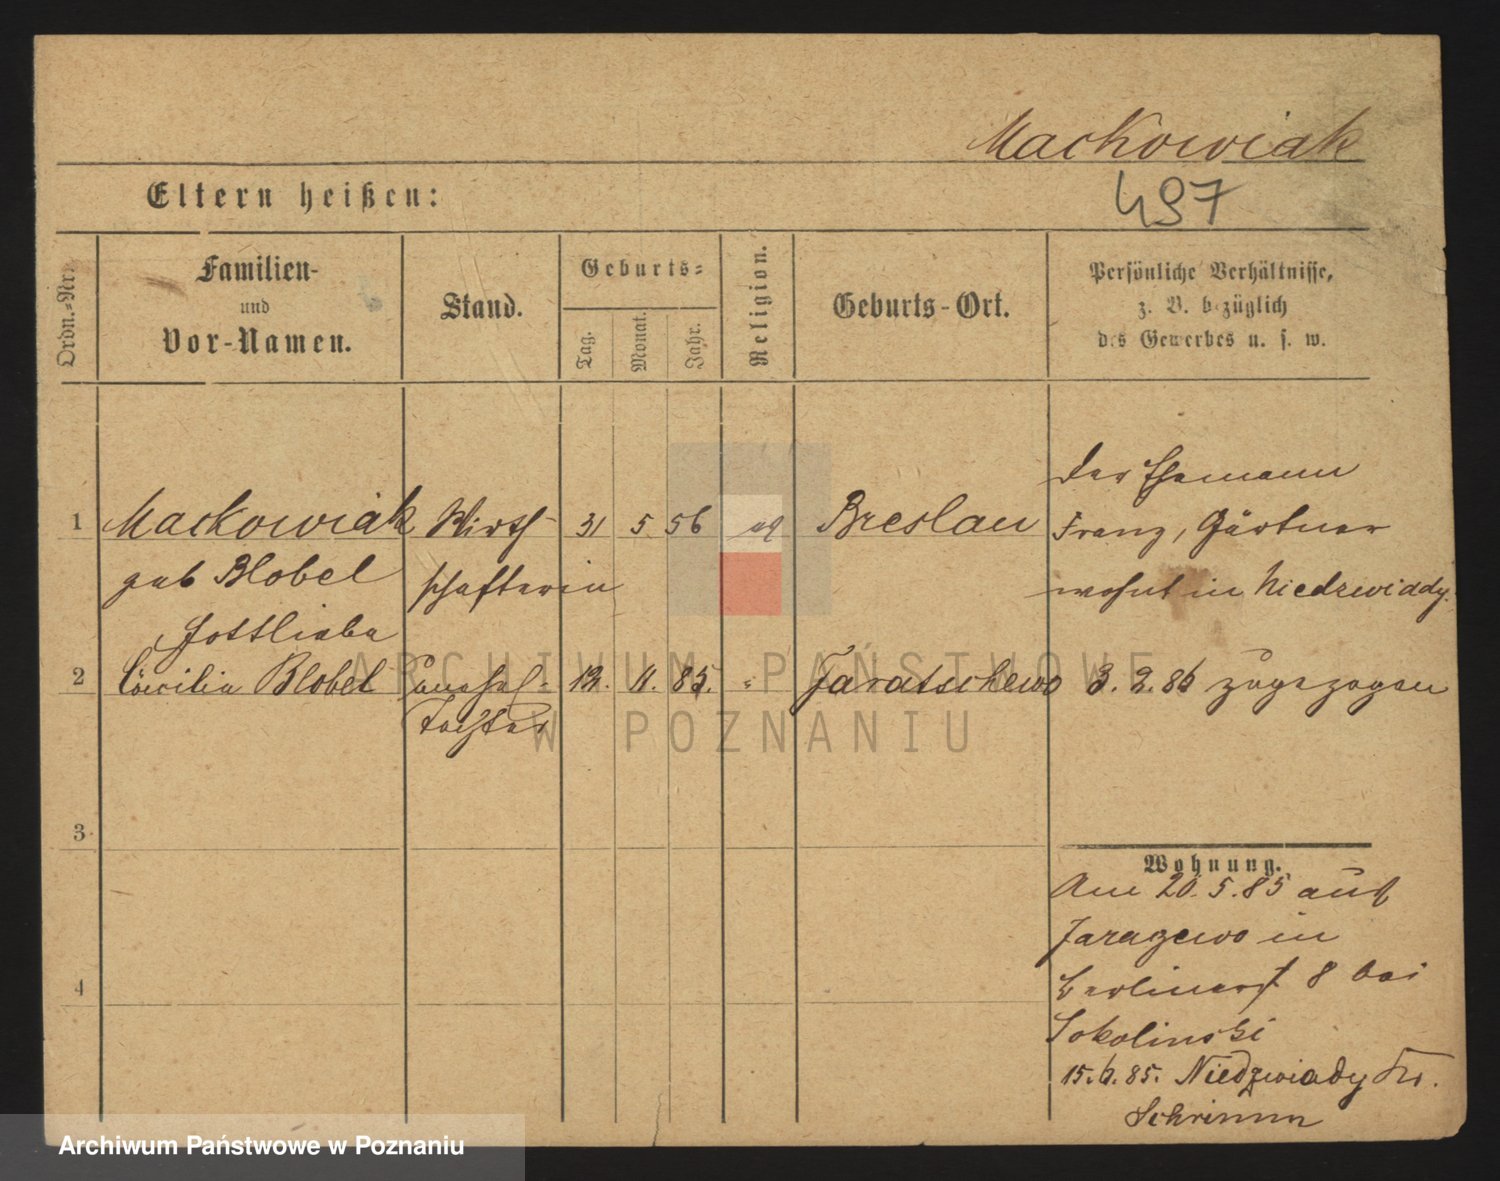 Mackowiak
497
Eltern heißen:
Ordn.-Nr.
Familien-
und
Vor-Namen.
Stand.
Geburts-
Tag.
Monat.
Jahr.
Religion.
Geburts-Ort.
Persönliche Verhältnisse,
z. B. bezüglich
des Gewerbes u. s. w.
1 Mackowiak Wirth- 31 5 56 Breslau
geb Blobel
schafterin
Gottliebe
Der Ehemann
Franz, Gärtner
wohnt in Niedzwiady.
2 Cäcilia Blobel 12. 11. 85. " Jaratschewo
Tochter
3. 2. 86 zugezogen
3
4
Wohnung.
Am 20.5.85 aus
Jaraczewo in
Berlinerst 8 bei
Sokolinski
15.6.85. Niedzwiady Kr.
Schrimm
ARCHIWUM PAŃSTWOWE
W POZNANIU
Archiwum Państwowe w Poznaniu